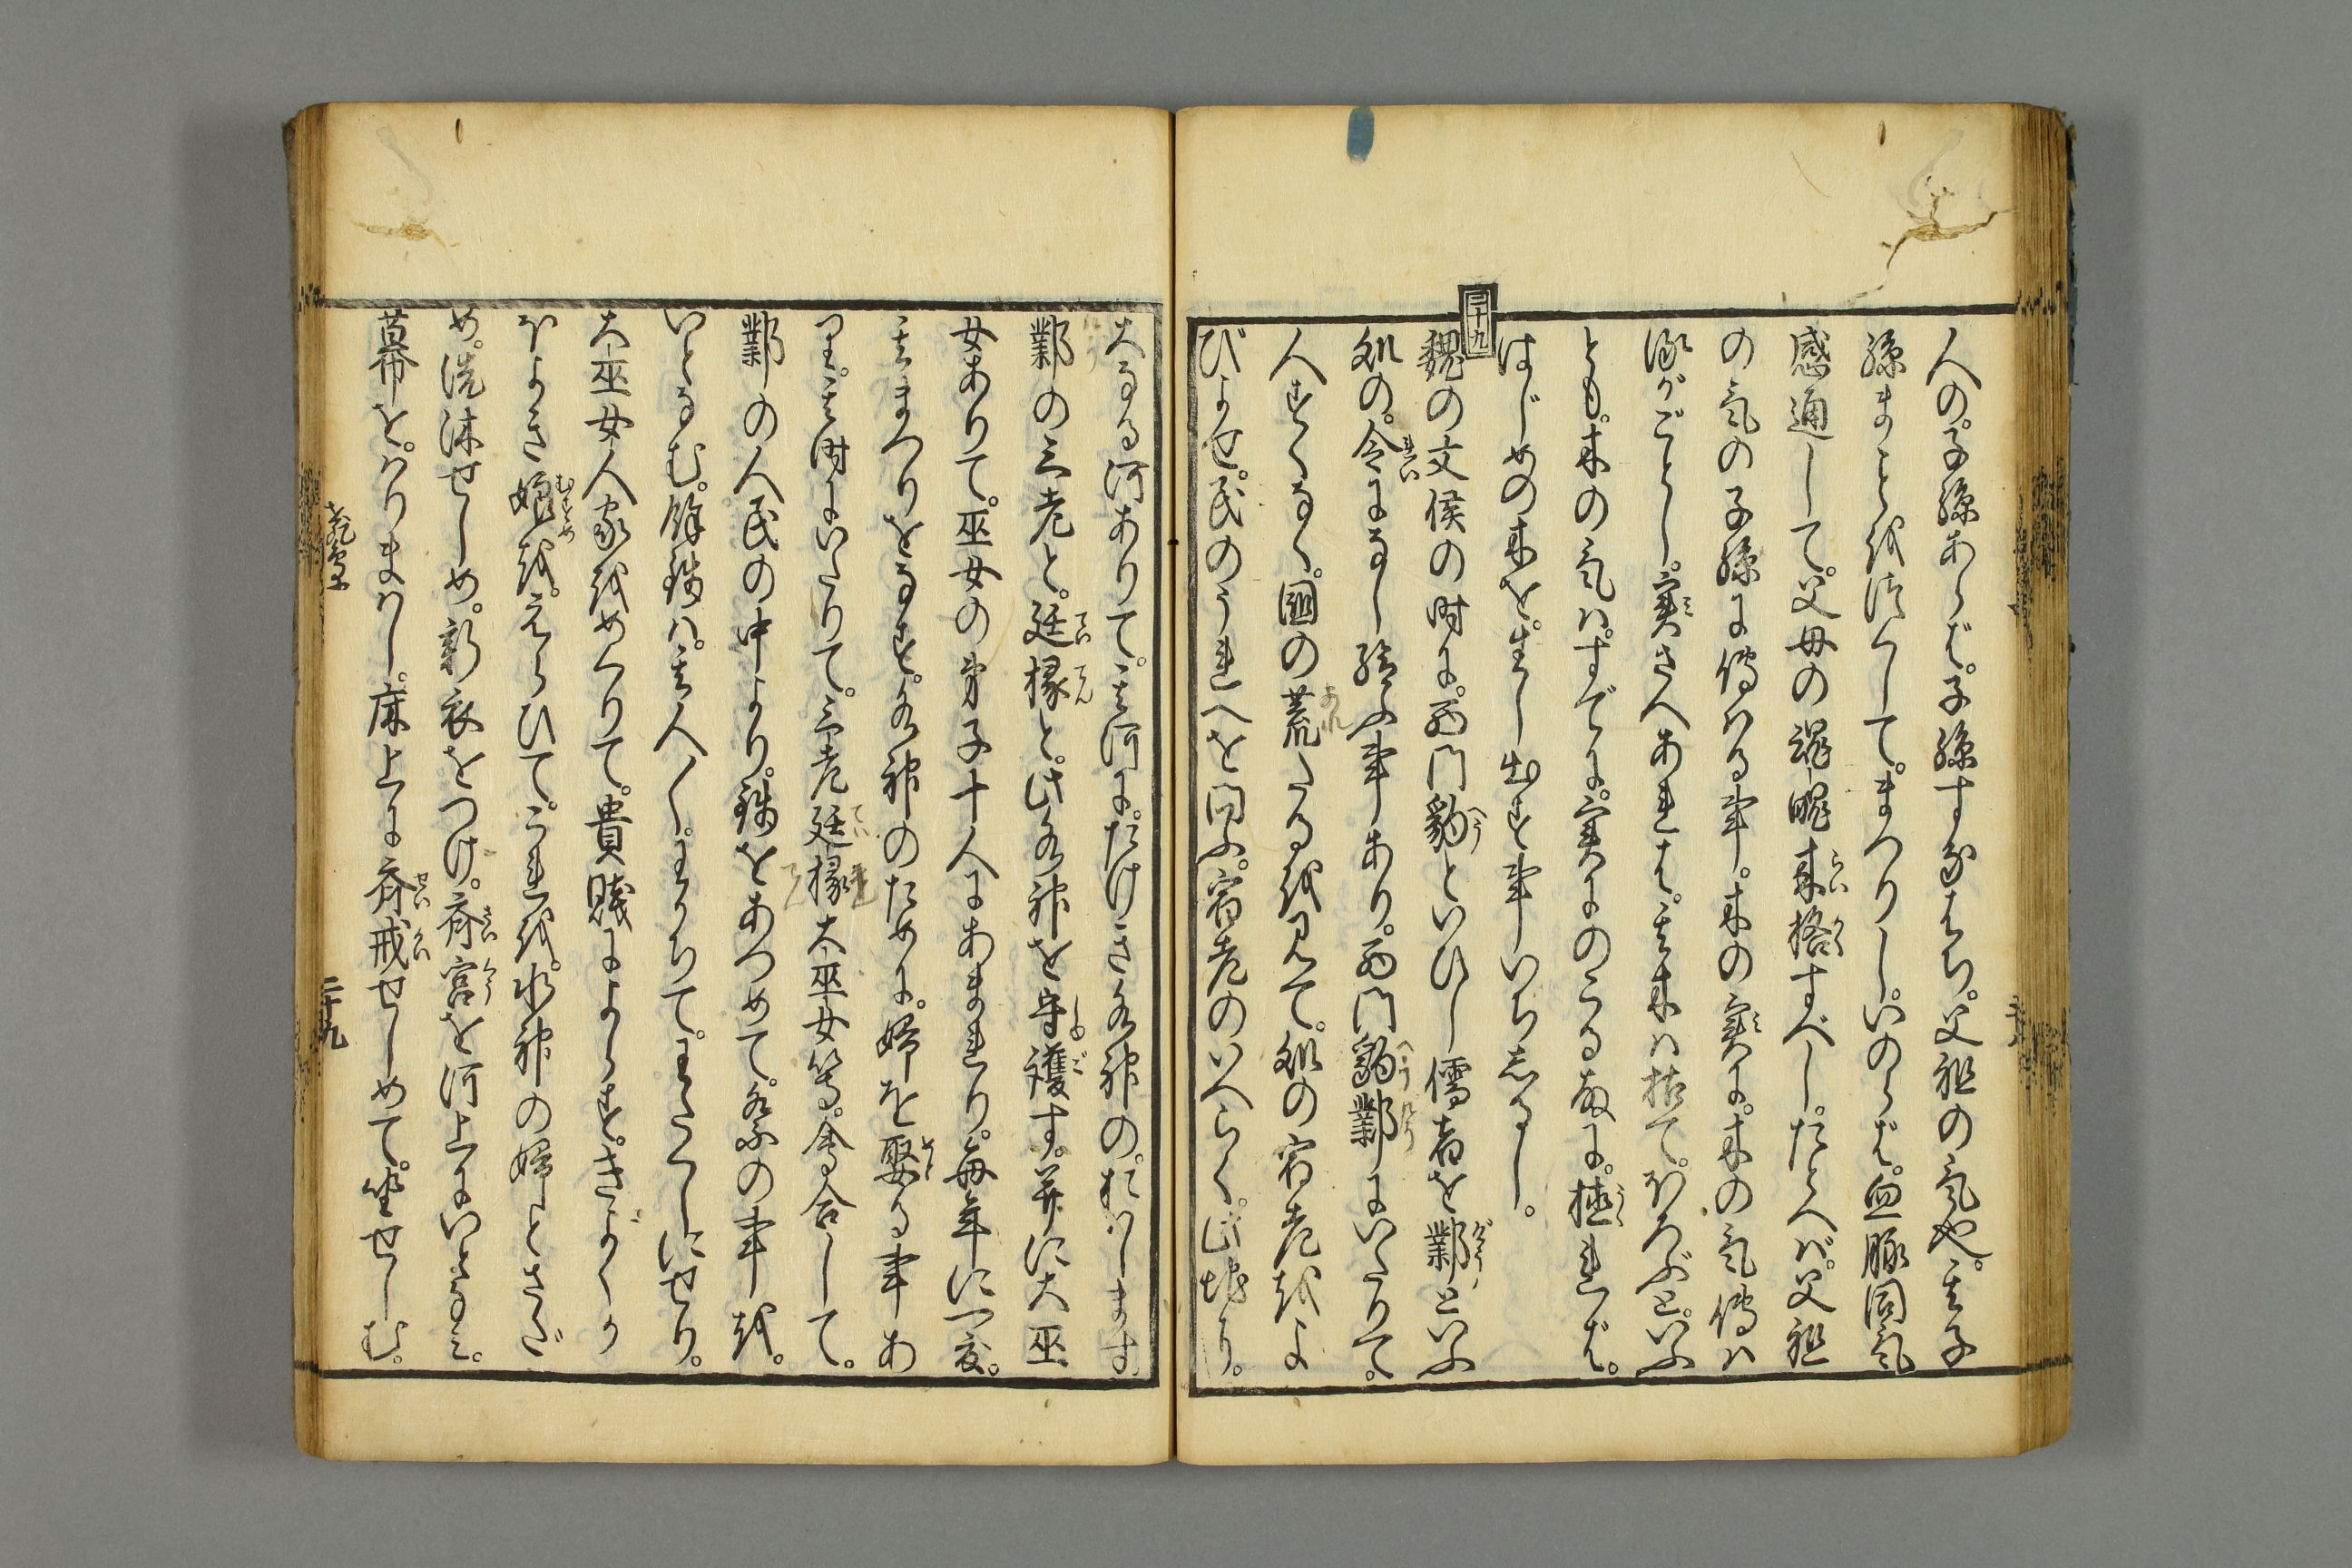 人の。子孫あらば。子孫すなはち。父祖の気也。其子
孫まことを
つくして。まつりし。いのらば。血脈同気
感通して。父母の魂魄来格すべし。たとへば。父祖
の気の子孫に伝はる事。木の実に。木の気伝は
るがごとし。実さへあれば。其木は枯て。ほろぶといふ
とも。木の気は。すでに。実にのこる故に。植れば。
はじめの木を。生し出す事いちじるし。
三十九
魏の文侯の時に。西門豹といひし儒者を鄴といふ
処の。令になし給ふ事あり。西門豹鄴にいたりて。
人すくなく。国の荒たるを見て。処の宿老をよ
びよせ。民のうれへを問ふ。宿老のいへらく。此地に。
大なる河ありて。其河に。たけき水神の。おはします。
鄴の三老と。廷掾と。此水神を守護す。并に大巫
女ありて。巫女の弟子十人にあまれり。毎年に一度。
其まつりをなす。水神のために。婦を娶る事あ
り。其時にいたりて。三老廷掾大巫女等。会合して。
鄴の人民の中より。銭をあつめて。祭の事を。
いとなむ。餘銭は。其人〱。わかちて。わたくしにせり。
大巫女人家をめぐりて。貴賤によらず。きりよくか
ほよき娘を。えらひて。これを。水神の婦とさだ
め。洗沐せしめ。新衣をつけ。斎宮を河上にいとなみ。
幕を。はりまはし。床上に斎戒せしめて。坐せしむ。
二十九